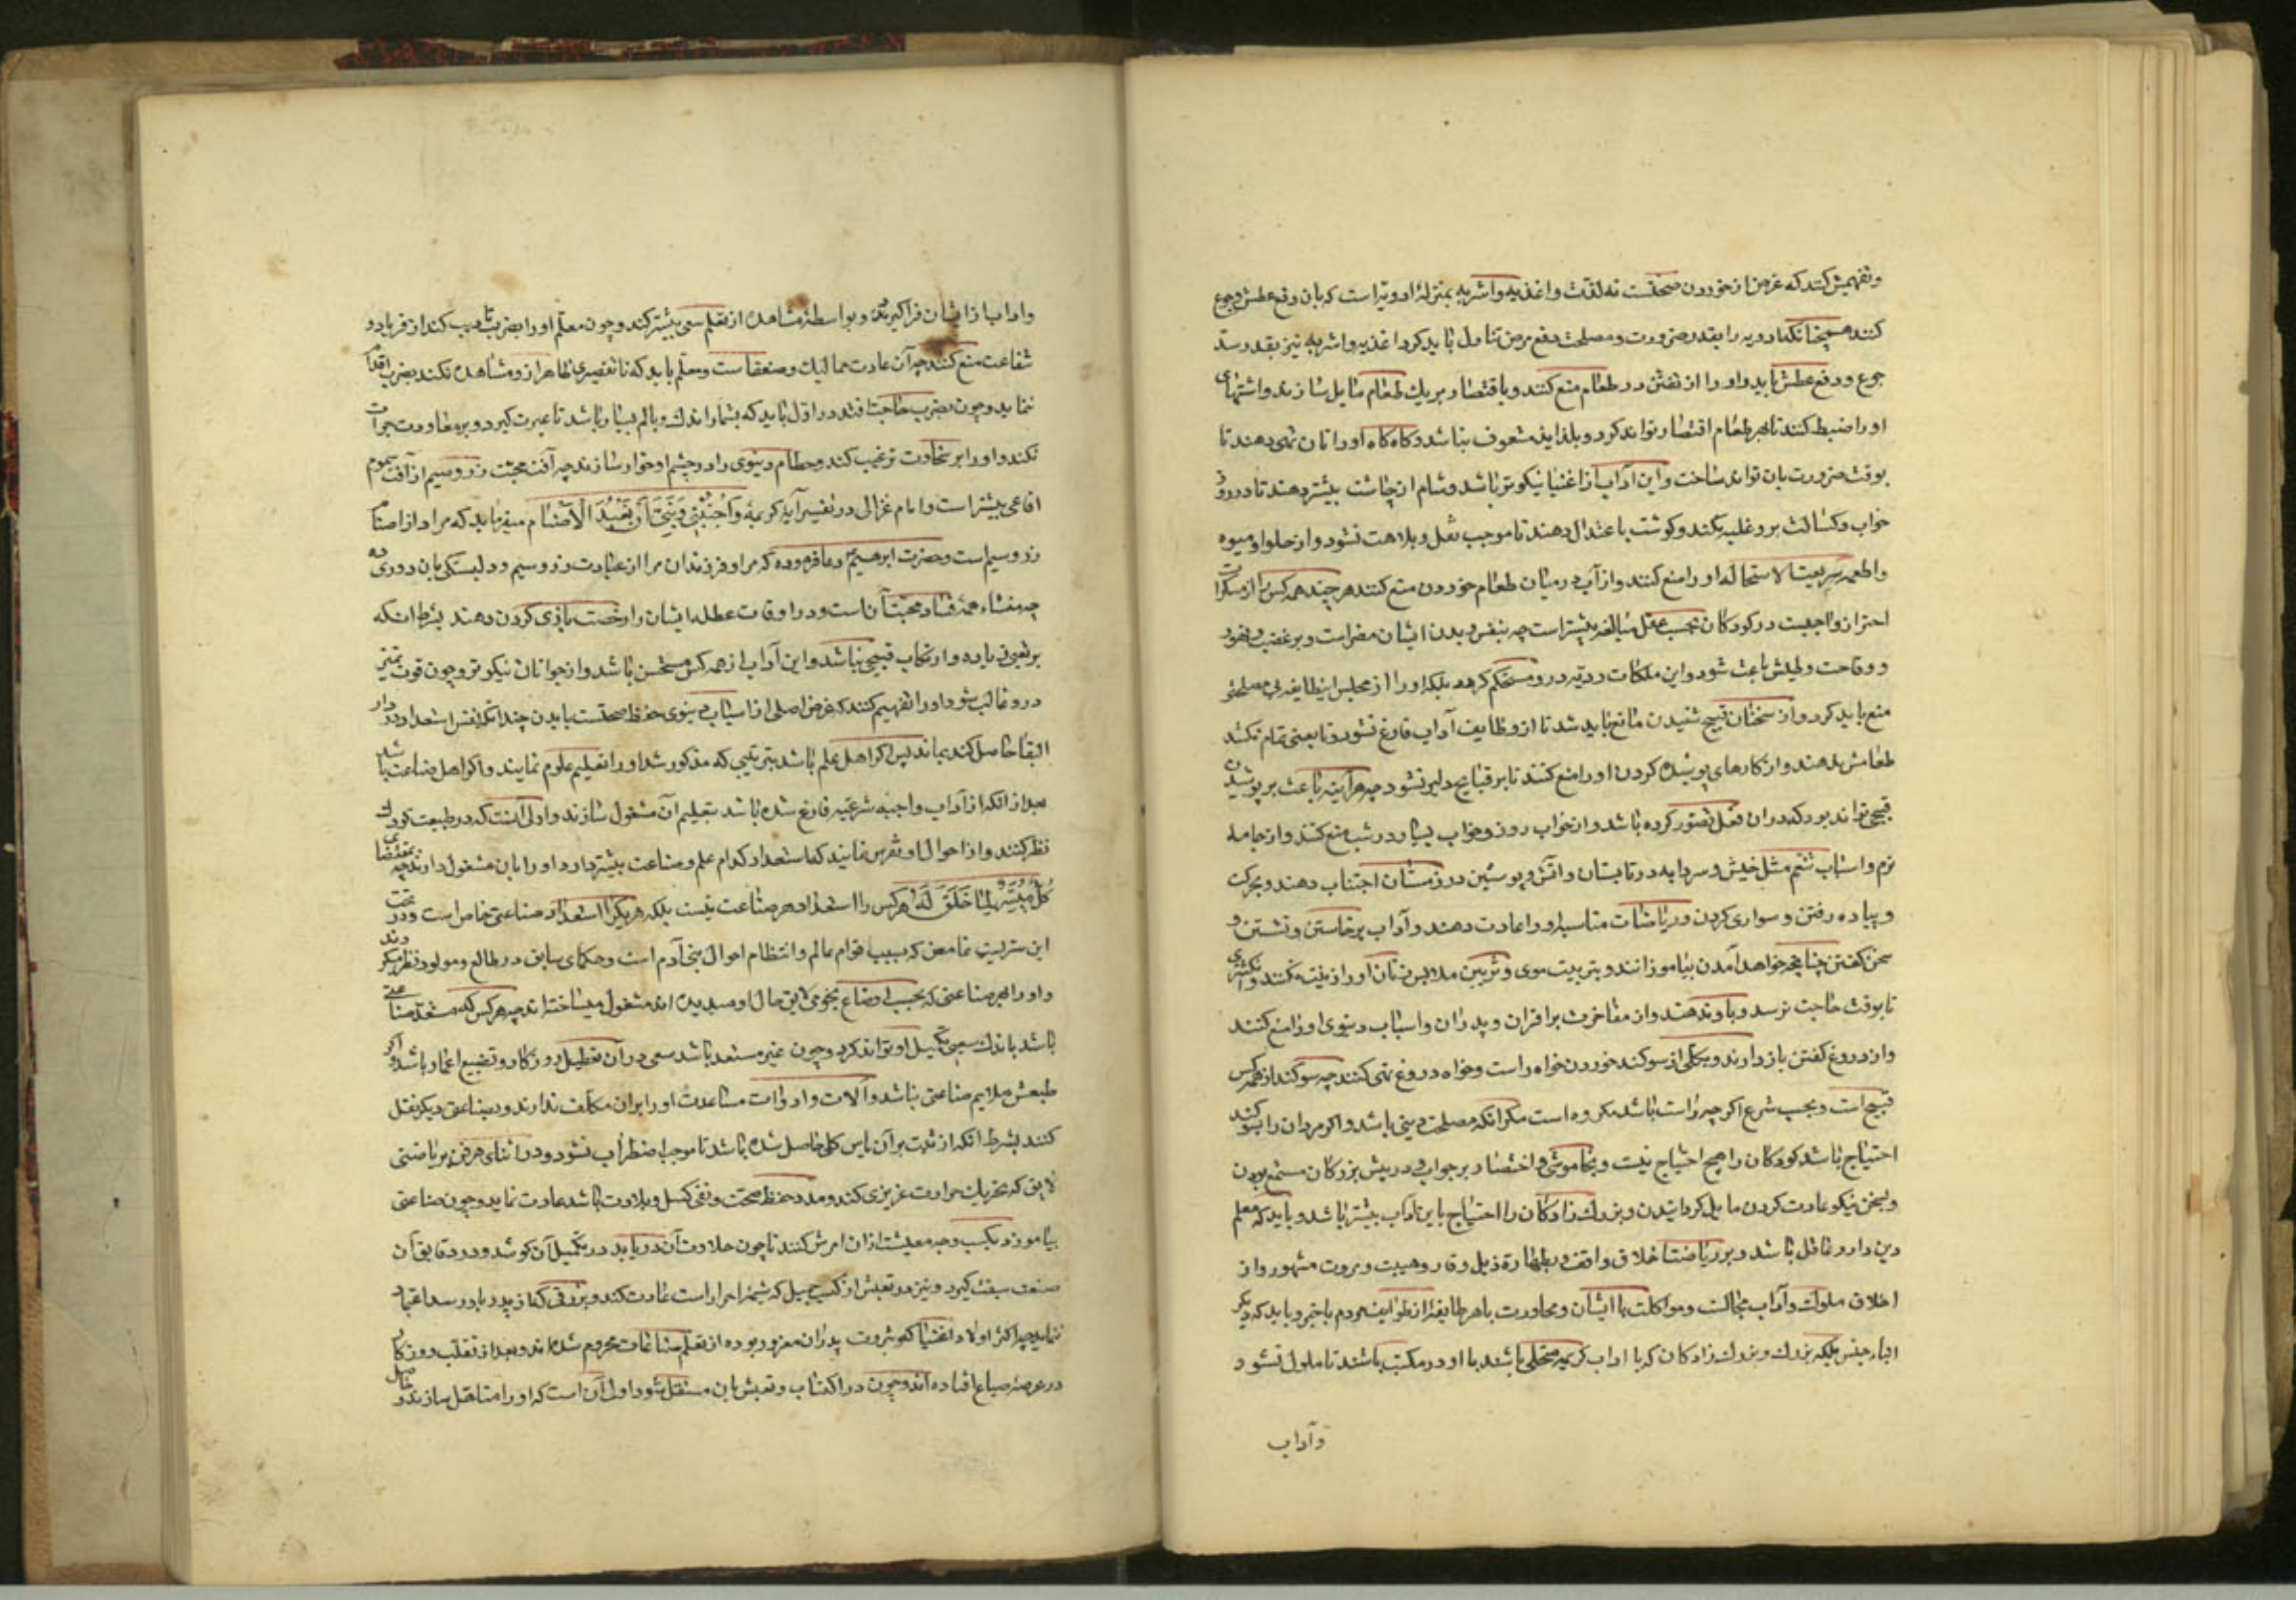 وتفهیمش کنند که غرض از خوردن صحتست نه لذت و اغذیه واشربه بمنزلهٔ ادویه است که بان دفع عطش وجوع
کنند همچنانکه ادویه را بقدر ضرورت ومصلحت دفع مرض تناول باید کرد اغذیه واشربه نیز بقدر سد
جوع ودفع عطش باید واو را از تفنن در طعام منع کنند وباقتصار بر یك طعام مایل سازند واشتهای
او را ضبط کنند تا بهر طعام اقتصار تواند کرد وبلذاید مشعوف نباشد وکاه کاه او را نان تهی دهند تا
بوقت ضرورت بان تواند ساخت واین آداب از اغنیا نیکوتر باشد وشام از چاشت بیشتر دهند تا در روز
خواب وکسالت برو غلبه نکند وکوشت باعتدال دهند تا موجب ثقل وبلادت نشود واز حلوا ومیوه
واطعمه سریعة الاستحاله او را منع کنند واز آب در میان طعام خوردن منع کنند هر چند همه کس را از مسکرات
احتراز واجبست در کودکان بحسب عقل مبالغه بیشتر است چه بنفس وبدن ایشان مضر است وبر غضب وتهور
ووقاحت وطیش باعث شود واین ملکات ردیه درو مستحکم کردد بلکه او را از مجلس این طایفه بی مصلحتی
منع باید کرد واز سخنان قبیح شنیدن مانع باید شد تا از وظایف آداب فارغ نشود وتا تعبی تمام نکشد
طعامش ندهند واز کارهای پوشیده کردن او را منع کنند تا بر قبایح دلیر نشود چه هر آینه باعث بر پوشیدن
قبیحی تواند بود که در ان فعل تصور کرده باشد واز خواب روز وخواب بسیار در شب منع کنند واز جامه
نرم واسباب تنعم مثل خیش وسردابه در تابستان واتش وپوستین در زمستان اجتناب دهند وبحرکت
وپیاده رفتن وسواری کردن وریاضات مناسب او را عادت دهند وآداب برخاستن ونشستن و
سخن کفتن چنانچه خواهد آمدن بیاموزانند وبتربیت موی وتزیین ملابس زنان او را زینت نکنند وانکشتری
تا بوقت حاجت نرسد وباو ندهند واز مفاخرت بر اقران وپدران واسباب دنیوی او را منع کنند
واز دروغ کفتن باز دارند وبکلی از سوکند خوردن خواه راست وخواه دروغ نهی کنند چه سوکند از همه کس
قبیح است وبحسب شرع اکر چه راست باشد مکروه است مکر انکه مصلحت دینی باشد واکر مردان را بسوکند
احتیاج باشد کودکان را هیچ احتیاج نیست وبخاموشی واختصار بر جواب ودر پیش بزرکان مستمع بودن
وبسخن نیکو عادت کردن مایل کردانیدن وبزرك زادکان را احتیاج باین آداب بیشتر باشد وباید که معلم
دین دار وعاقل باشد وبر ریاضت اخلاق واقف وبطهارة ذیل ووقار وهیبت ومروت مشهور واز
اخلاق ملوك وآداب مجالست ومواکلت با ایشان ومحاورت با هر طایفه از طوایف مردم باخبر وباید که دیکر
ابناء جنس بلکه بزرك وبزرك زادکان که باداب کریمه متحلی باشند با او در مکتب باشند تا ملول نشود
وآداب
واداب از ایشان فرا کیرند وبواسطهٔ مشاهده از تعلم سعی بیشتر کند وچون معلم او را بضرب تادیب کند از فریاد و
شفاعت منع کنند چه آن عادت ممالیك وضعفاست ومعلم باید که تا تقصیری ظاهر ازو مشاهده نکند بضرب اقدام
ننماید وچون بضرب حاجت افتد در اول باید که بشمار اندك وبالم بسیار باشد تا عبرت کیرد وبر معاودت جرأت
نکند واو را بر سخاوت ترغیب کند وحطام دنیوی را در چشم او خوار سازند چه آفت محبت زر وسیم از آفت سموم
افاعی بیشتر است وامام غزالی در تفسیر آیه کریمهٔ وَاجْنُبْنِي وَبَنِيَّ أَنْ نَعْبُدَ الْأَصْنَام میفرماید که مراد از اصنام
زر وسیم است وحضرت ابرهیم دعا فرموده که مرا وفرزندان مرا از عبادت زر وسیم ودلبستکی بان دوری ده
چه منشاء همهٔ فساد محبت آن است ودر اوقات عطله ایشان را رخصت بازی کردن دهند بشرط انکه
بر تعبی زیاده وارتکاب قبیحی نباشد واین آداب از همه کس مستحسن باشد واز جوانان نیکوتر وچون قوت تمیز
درو غالب شود او را تفهیم کنند که غرض اصلی از اسباب دنیوی حفظ صحتست تا بدن چندانکه نفس استعداد دار
البقا حاصل کند بماند پس اکر اهل علم باشد بترتیبی که مذکور شد او را تعلیم علوم نمایند واکر اهل صناعت باشد
بعد از انکه از آداب واجبه شرعیه فارغ شده باشد بتعلیم آن مشغول سازند واولی آنست که در طبیعت کودك
نظر کنند واز احوال او تفرس نمایند که استعداد کدام علم وصناعت بیشتر دارد او را بان مشغول دارند چه بمقتضای
كُلٌّ مُيَسَّرٌ لِمَا خُلِقَ لَهُ هر کس را استعداد هر صناعت نیست بلکه هر یکی را استعداد صناعتی خاص است ودر تحت
این سریست غامض که سبب قوام عالم وانتظام احوال بنی آدم است وحکمای سابق در طالع ومولود نظر میکردند
واو را بهر صناعتی که بحسب اوضاع نجومی لایق حال او میدیده اند مشغول میساخته اند چه هر کس که مستعد صناعتی
باشد باندك سعی تکمیل او تواند کرد وچون غیر مستعد باشد سعی در آن تعطیل روزکار وتضییع اعمار باشد واکر
طبعش ملایم صناعتی نباشد وآلات وادوات مساعدت او را بران مکلف ندارند وبصناعتی دیکر نقل
کنند بشرط انکه از ثبت بر آن یاس کلی حاصل شده باشد تا موجب اضطراب نشود ودر اثنای هر فنی بریاضتی
لایق که تحریك حرارت غریزی کند ومدد حفظ صحت ونفی کسل وبلادت باشد عادت نماید وچون صناعتی
بیاموزد بکسب وجه معیشت ازان امرش کنند تا چون حلاوت آن دریابد در تکمیل آن کوشد ودر دقایق آن
صنعت سبقت کیرد ونیز در تعیش از کسب جمیل که شیمهٔ احرار است عادت کند وبر زقی که از پدر باو رسد اعتماد
ننماید چه اکثر اولاد اغنیا که بثروت پدران مغرور بوده از تعلم صناعات محروم شده اند وبعد از تقلب روزکار
در عرصهٔ ضیاع افتاده اند وچون در اکتساب وتعیش بان مستقل شود اولی آن است که او را متاهل سازند و